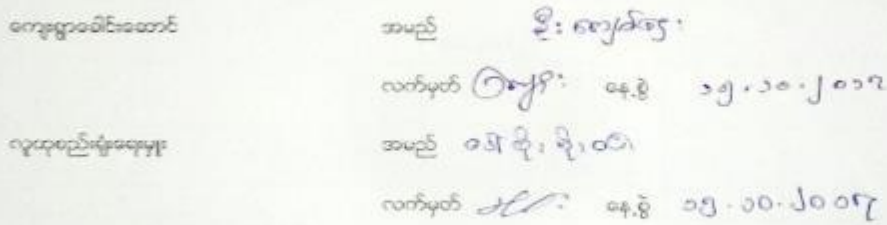 ကျေးရွာခေါင်းဆောင် အမည် ဦး ကျော်ဌေး
လက်မှတ် နေ့စွဲ ၁၅.၁၀.၂၀၁၇
လူထုစည်းရုံးရေးမှူး အမည် ဒေါ်
လက်မှတ် နေ့စွဲ ၁၅.၁၀.၂၀၁၇